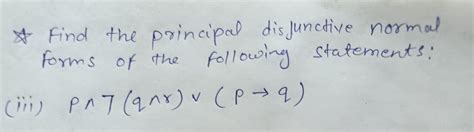 ☆ Find the principal disjunctive normal
forms of the following statements:
(iii) P∧7(q∧r) ∨ (p → q)